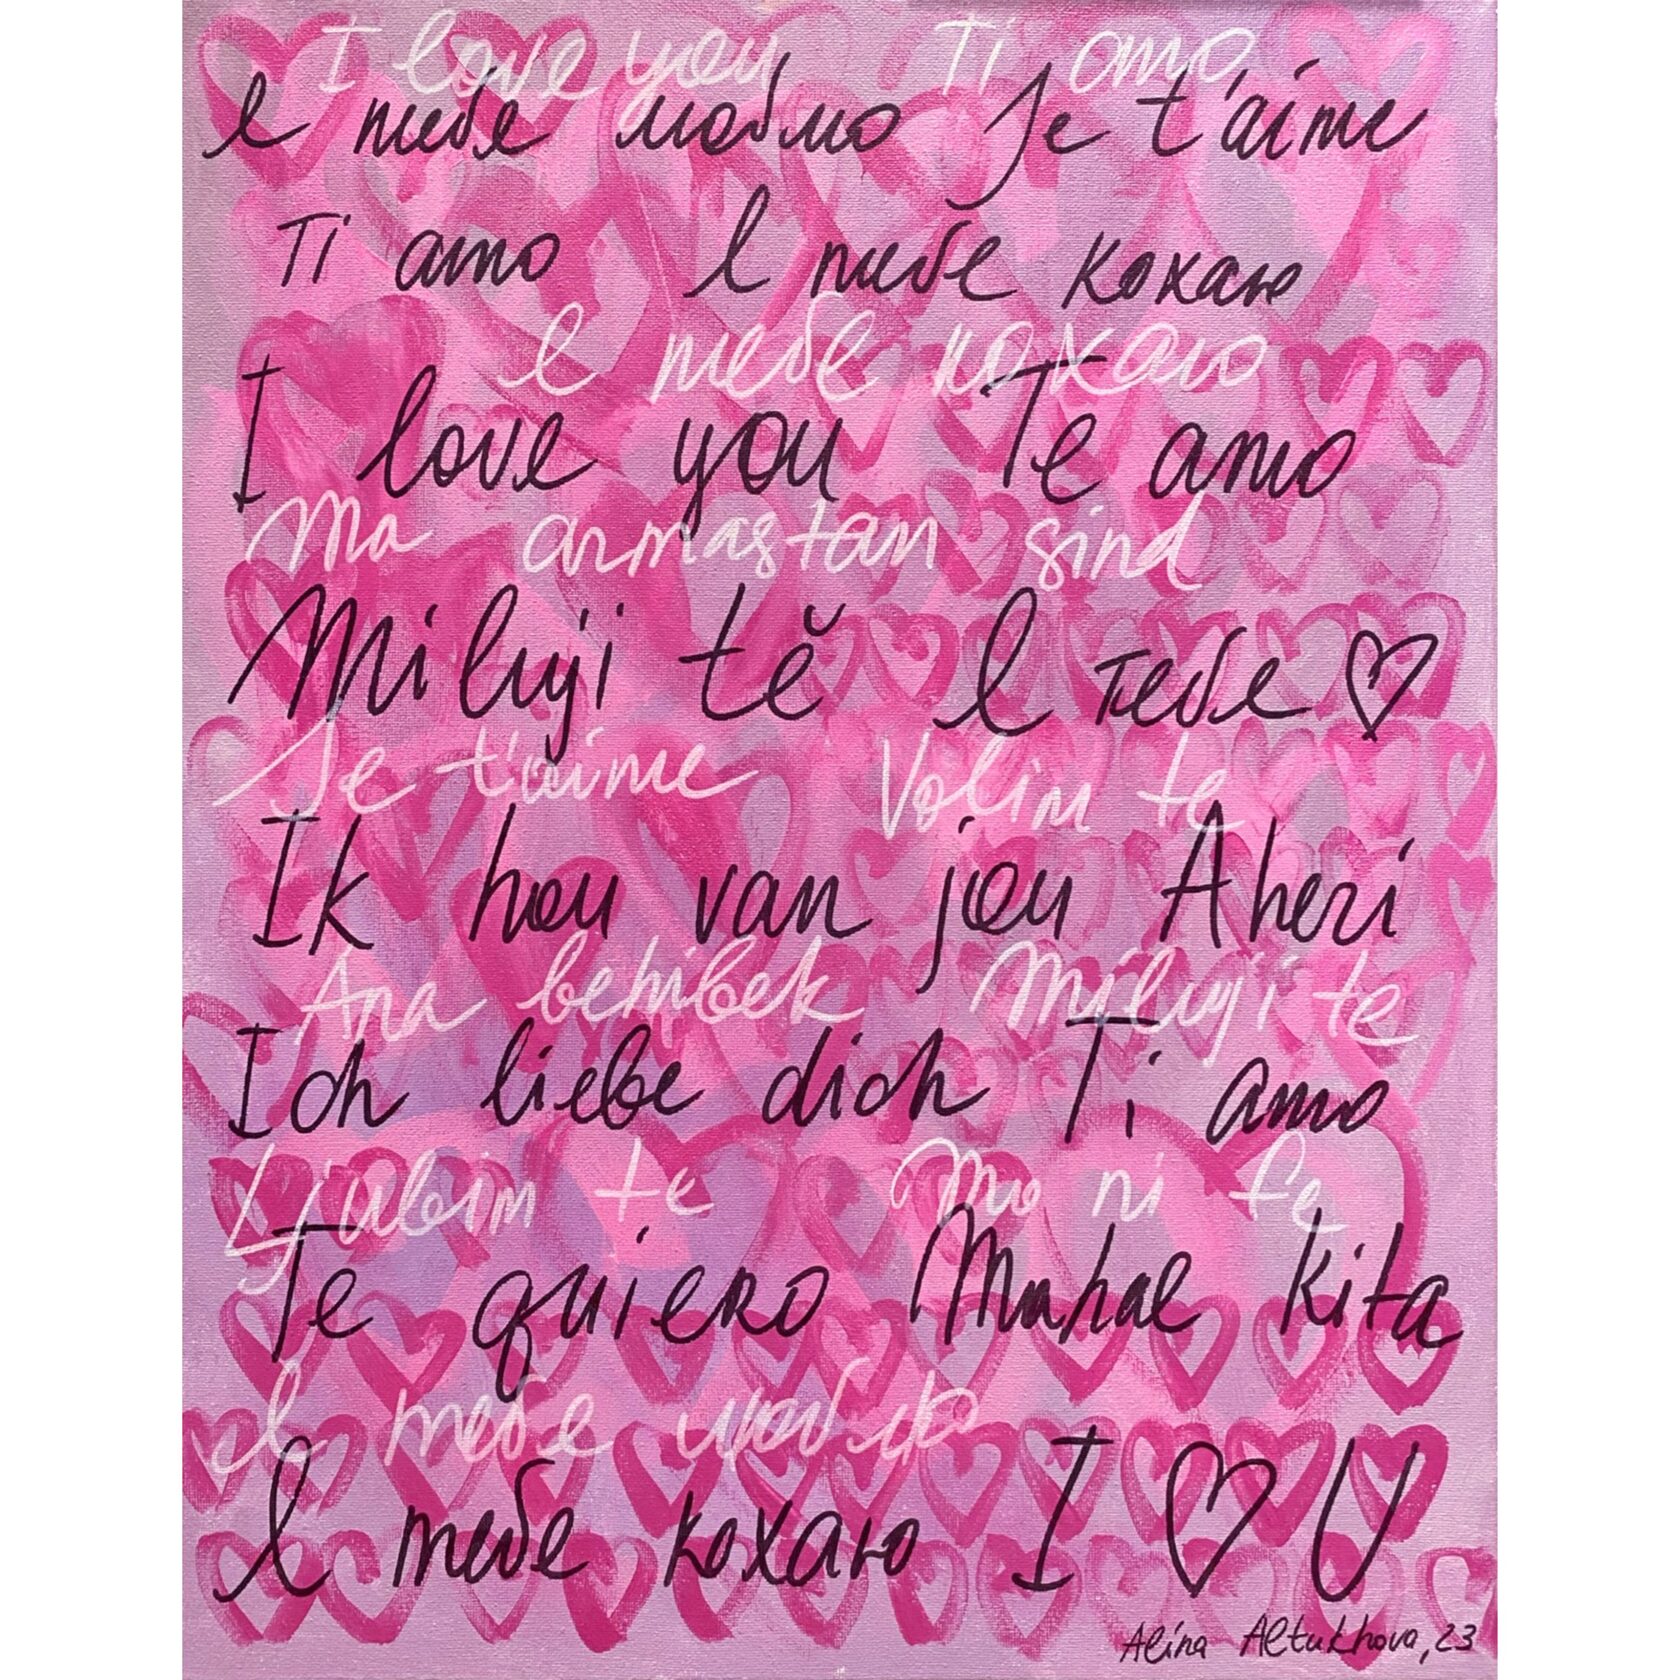 I love you Ti amo
Я тебе люблю Je t'aime
Ti amo Я тебе кохаю
Я тебе кохаю
I love you Te amo
Ma armastan sind
Miluji tě Я тебе ♡
Je t'aime Volim te
Ik hou van jou Aheri
Ana behibek Miluji te
Ich liebe dich Ti amo
Ljubim te Mo ni fe
Te quiero Mahal Kita
Я тебе люблю
Я тебе кохаю I ♡ U
Alina Altukhova, 23